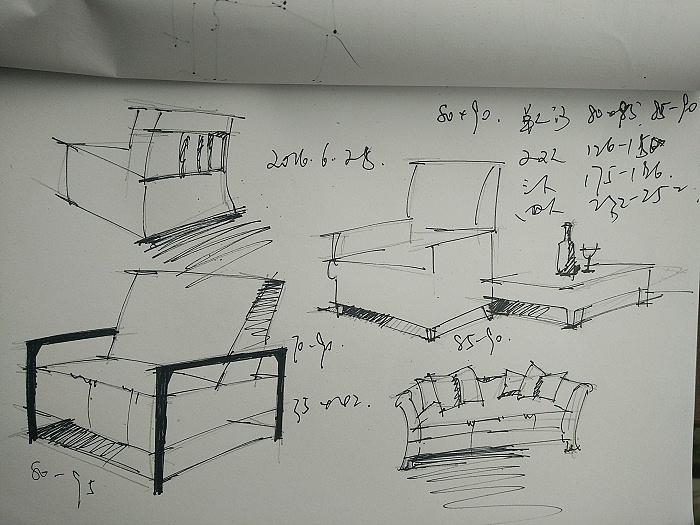 80×90. 单人沙 80-85 85-90
2016.6.28.
二人 126-150
三人 175-186.
四人 232-252
70-90.
85-90.
80-95